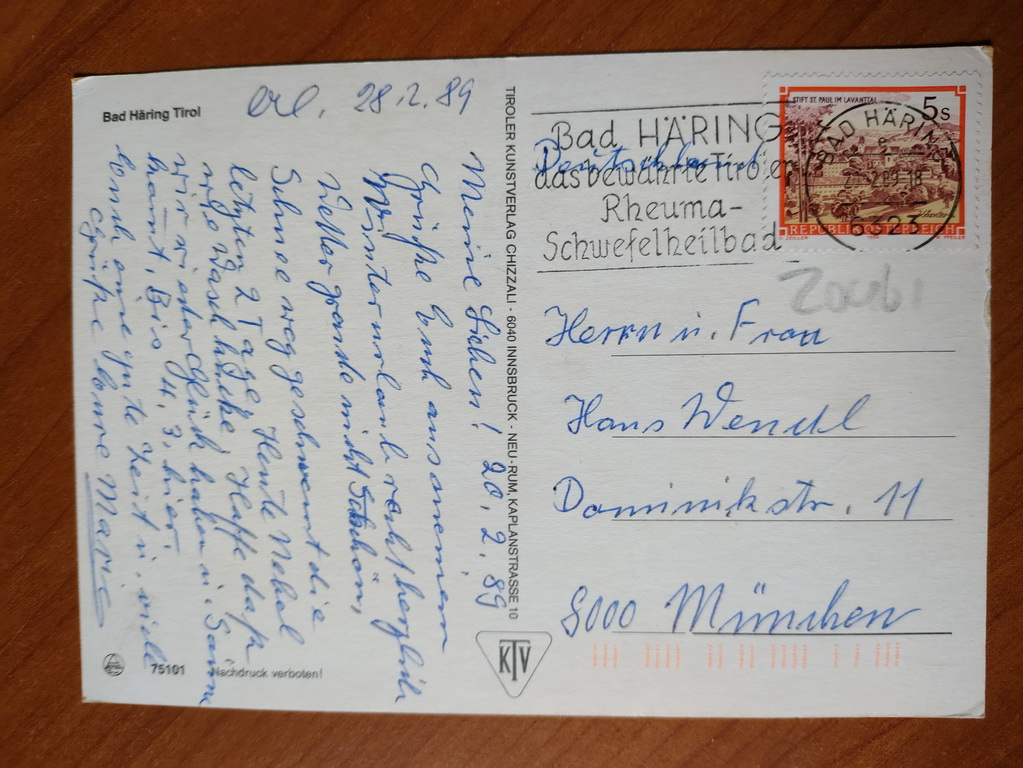 Bad Häring Tirol
erl. 28.2.89
Meine Lieben! 20.2.89
Grüße Euch aus meinem
Winterurlaub recht herzlich
Wetter gerade nicht schön,
Schnee weggeschwemmt die
letzten 2 Tage, Heute Nebel
wie Waschküche, Hoffe daß
wir wieder Glück haben u. Sonne
kommt, Bis 4.3. hier.
Euch eine gute Zeit u. viele
Grüße Eure Marie
75101 Nachdruck verboten!
TIROLER KUNSTVERLAG CHIZZALI - 6040 INNSBRUCK - NEU-RUM, KAPLANSTRASSE 10
KTV
Bad HÄRING
das bewährte Tiroler
Rheuma-
Schwefelheilbad
Deutschland
STIFT ST. PAUL IM LAVANTTAL
5s
REPUBLIK ÖSTERREICH
ZEILER 1984 PFEILER
BAD HÄRING
6323
Herrn u. Frau
Hans Wendl
Dominikstr. 11
8000 München